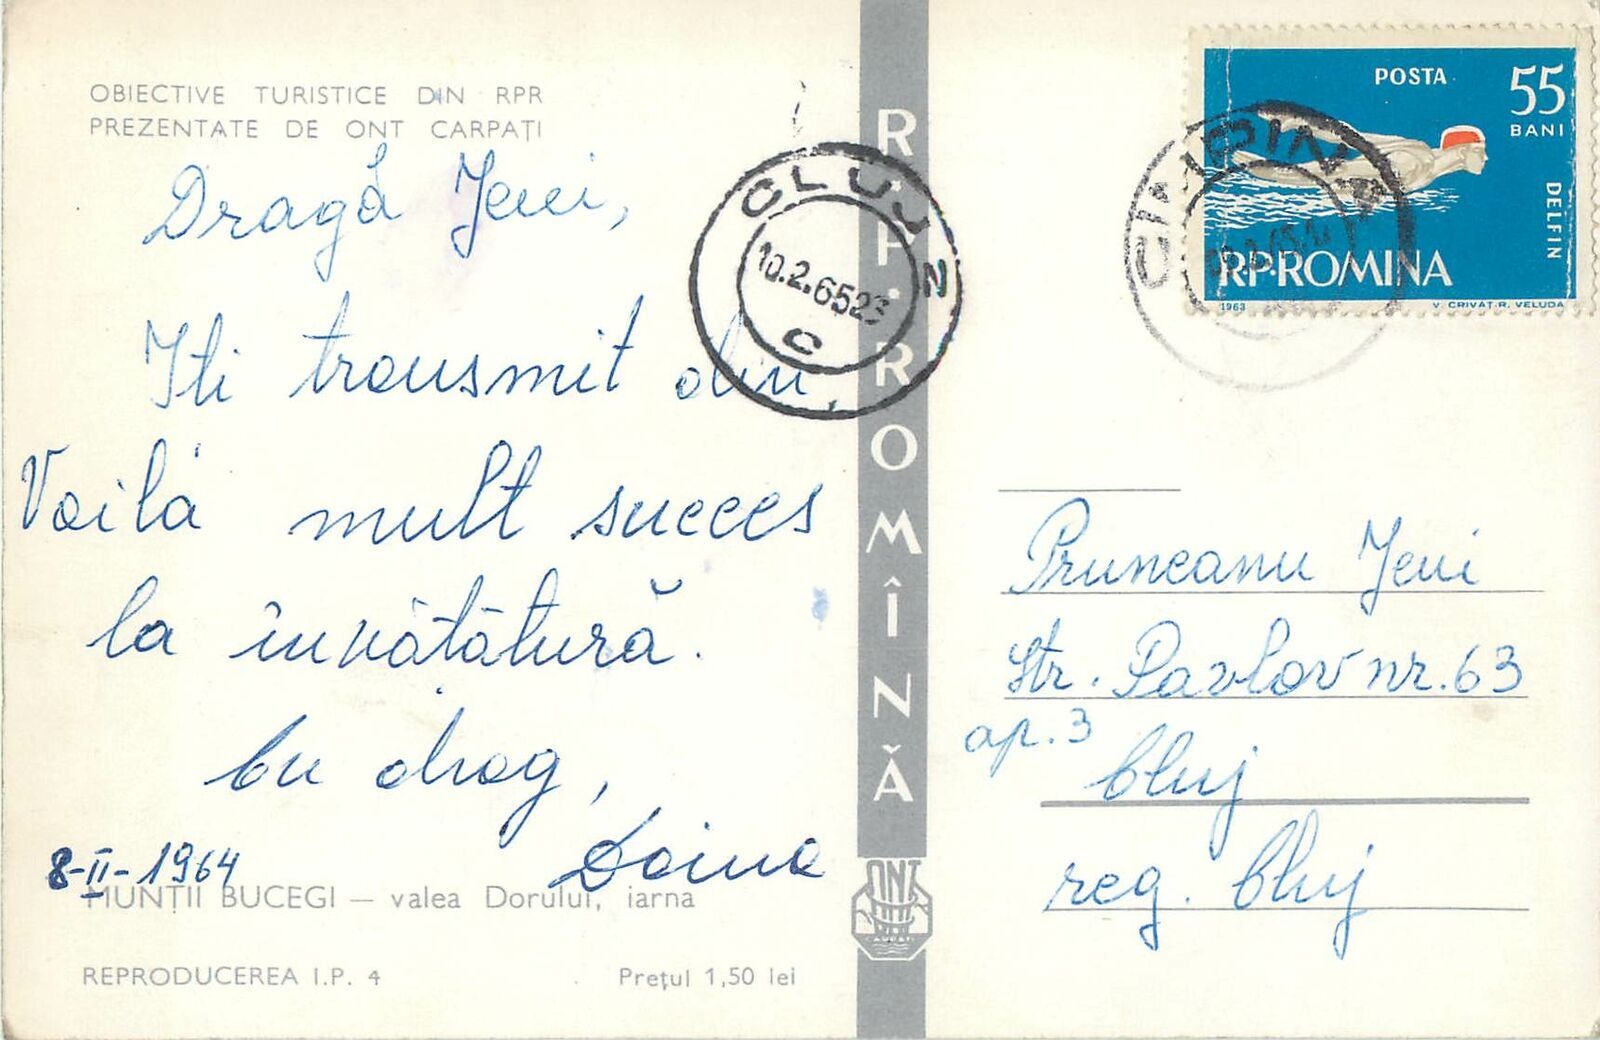 OBIECTIVE TURISTICE DIN RPR
PREZENTATE DE ONT CARPAȚI
Dragă Jeni,
Iti transmit din
Vaila mult succes
la învătătură.
Cu drag,
Doina
8-II-1964
MUNȚII BUCEGI – valea Dorului, iarna
REPRODUCEREA I.P. 4
Prețul 1,50 lei
R.P.ROMÎNĂ
ONT
CARPAȚI
CLUJ 2
10.2.6523
C
POSTA
55
BANI
DELFIN
R·P·ROMINA
1963
V. CRIVĂȚ-R. VELUDA
CÎMPINA
Pruneanu Jeni
Str. Pavlov nr. 63
ap. 3
Cluj
reg. Cluj